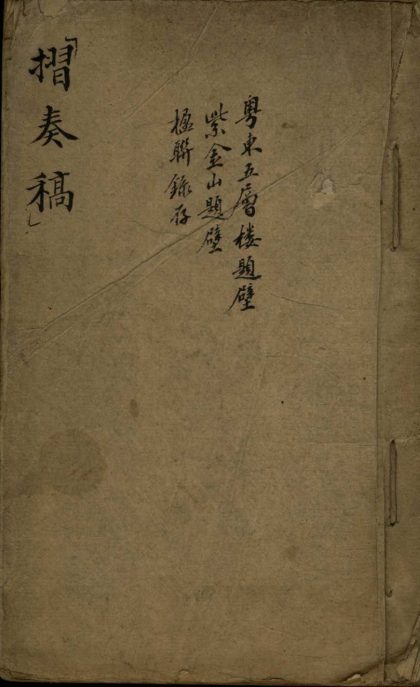 粤東五層楼題壁
紫金山題壁
楹聯錄存
「摺奏稿」